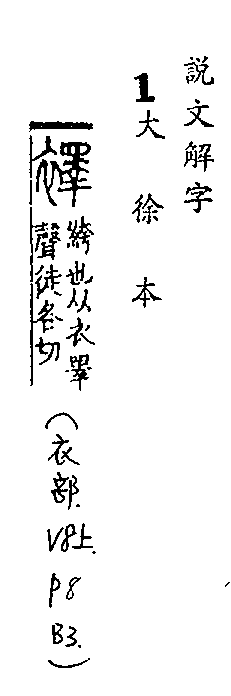 説文解字
1大徐本
襗
絝也从衣睪
聲徒各切
(衣部.V8上.P8 B3.)